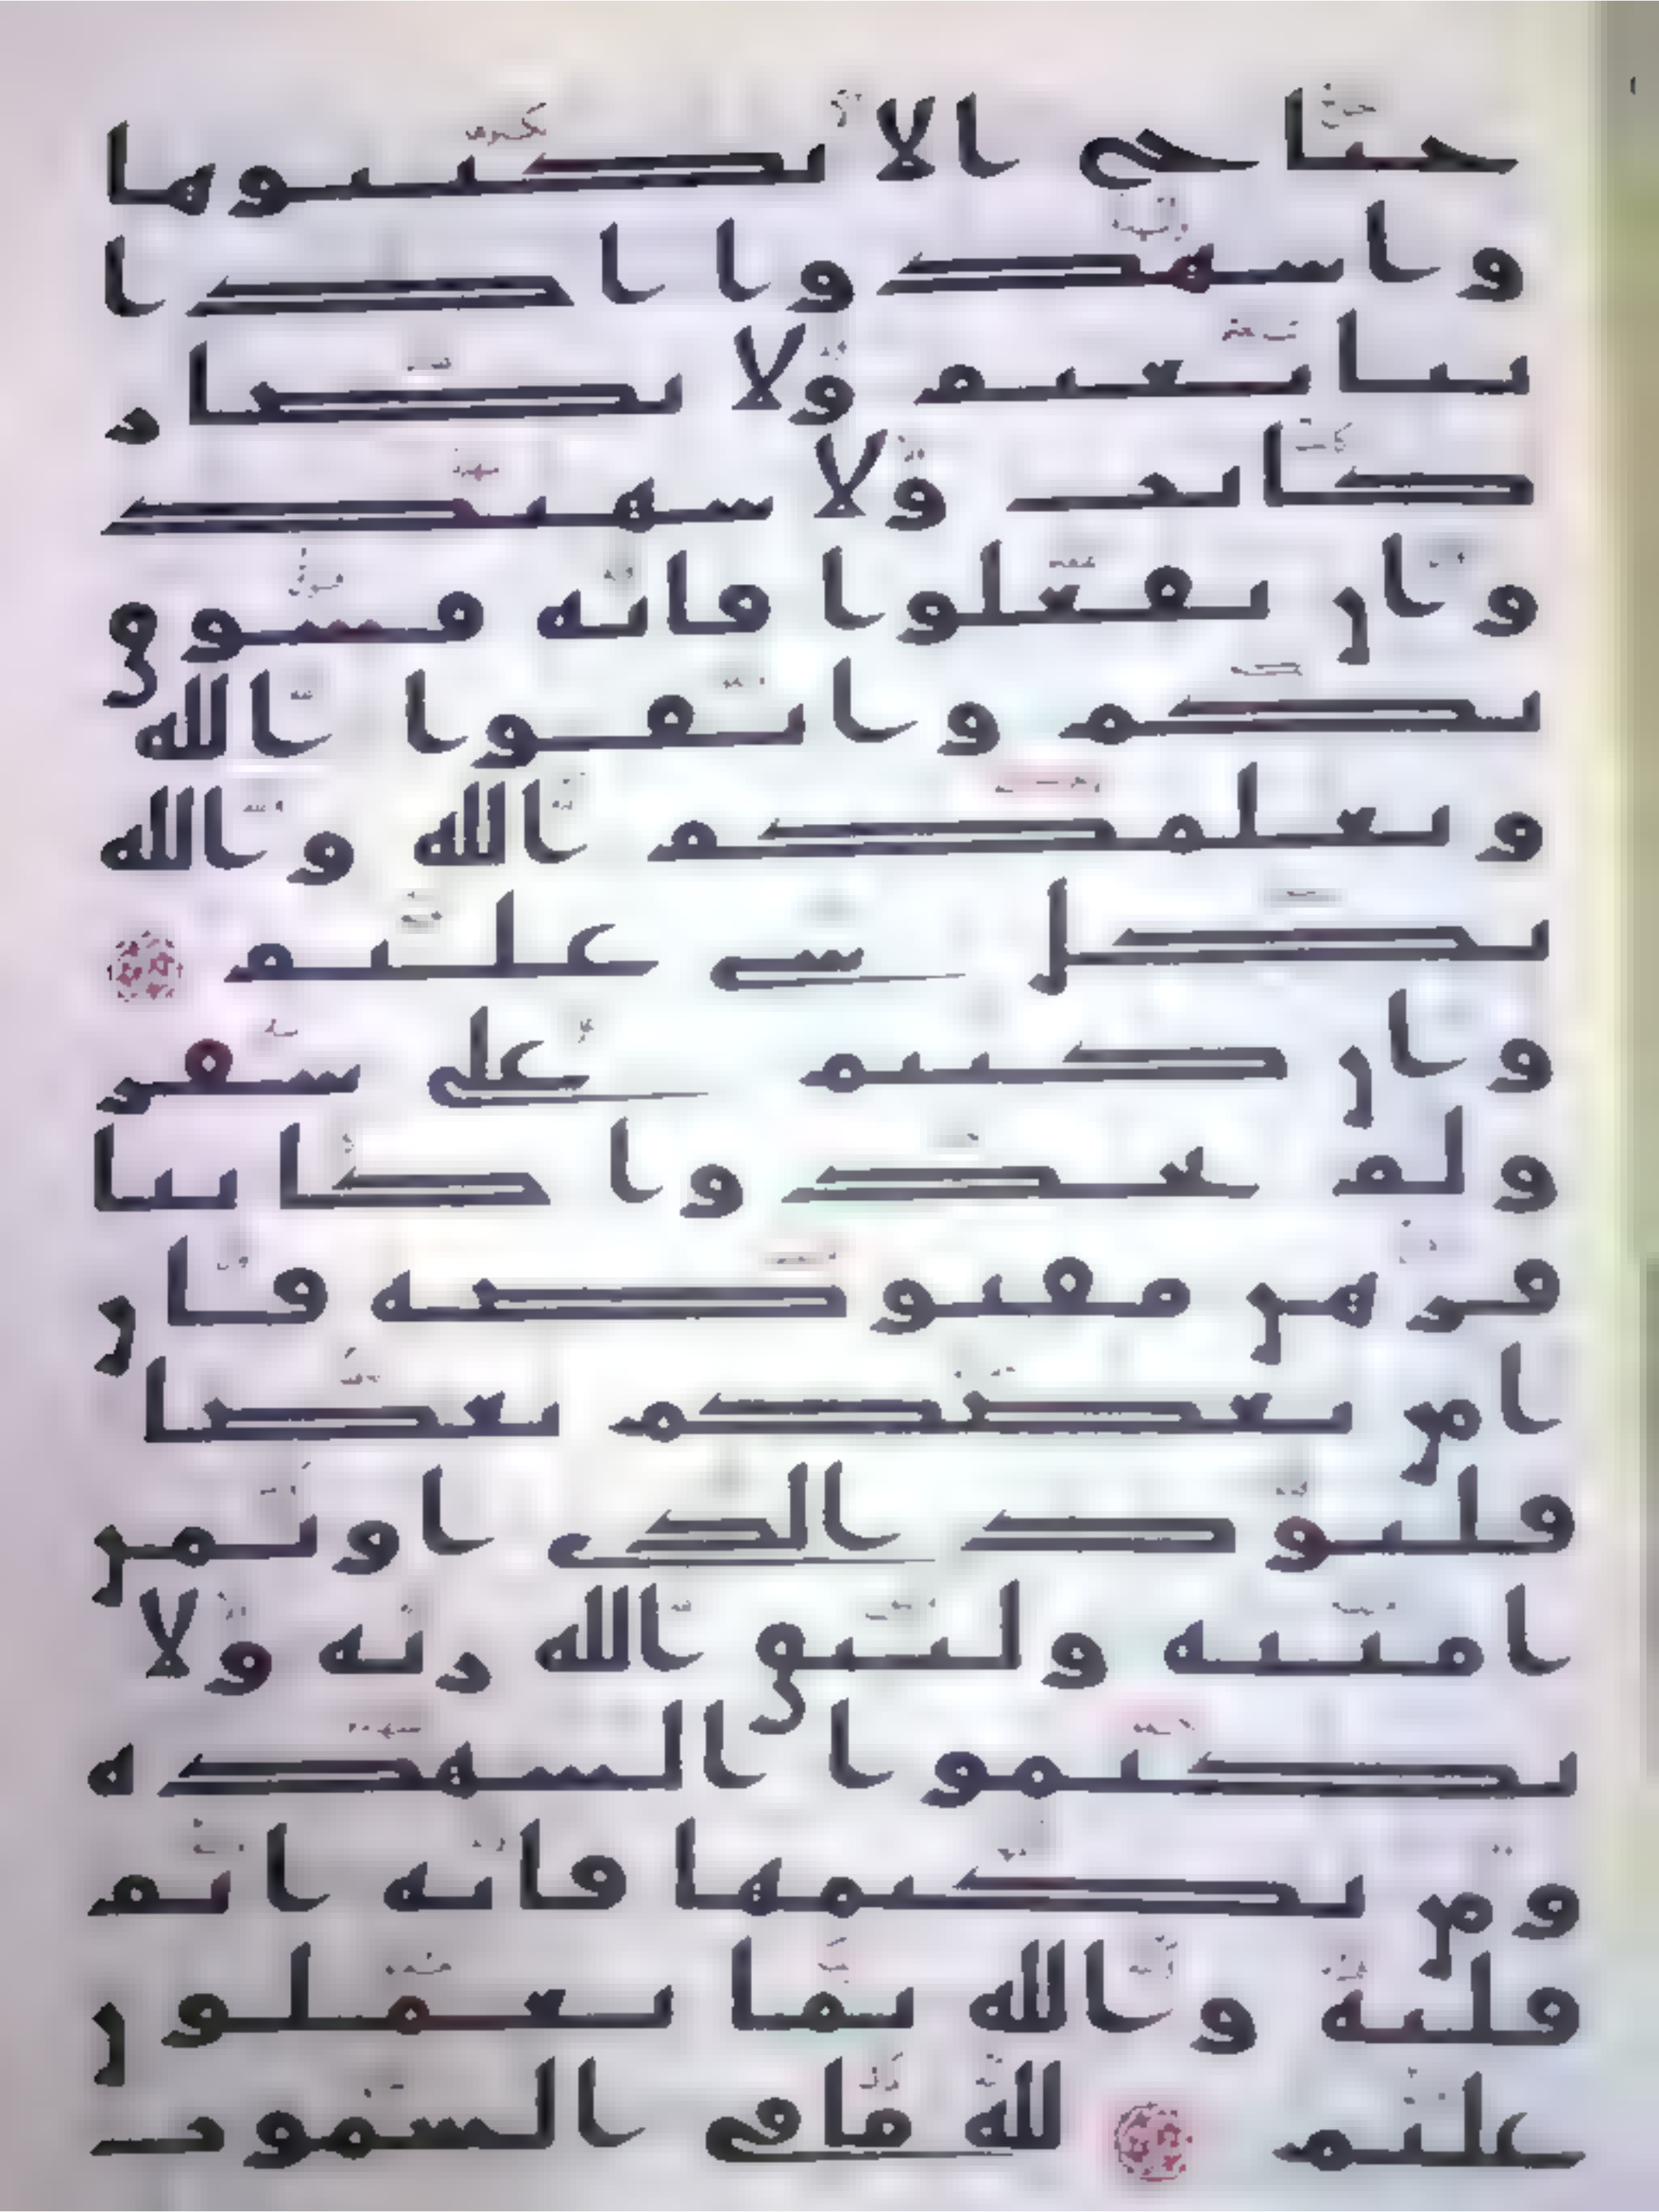 جناح الا تكتبوها
واشهدوا اذا
تبايعتم ولا يضار
كاتب ولا شهيد
وان تفعلوا فانه فسوق
بكم واتقوا الله
ويعلمكم الله والله
بكل شي عليم
وان كنتم على سفر
ولم تجدوا كاتبا
فرهن مقبوضه فان
امن بعضكم بعضا
فليود الذي اوتمن
امنته وليتق الله ربه ولا
تكتموا الشهده
ومن يكتمها فانه اثم
قلبه والله بما تعملون
عليم لله ما في السموت